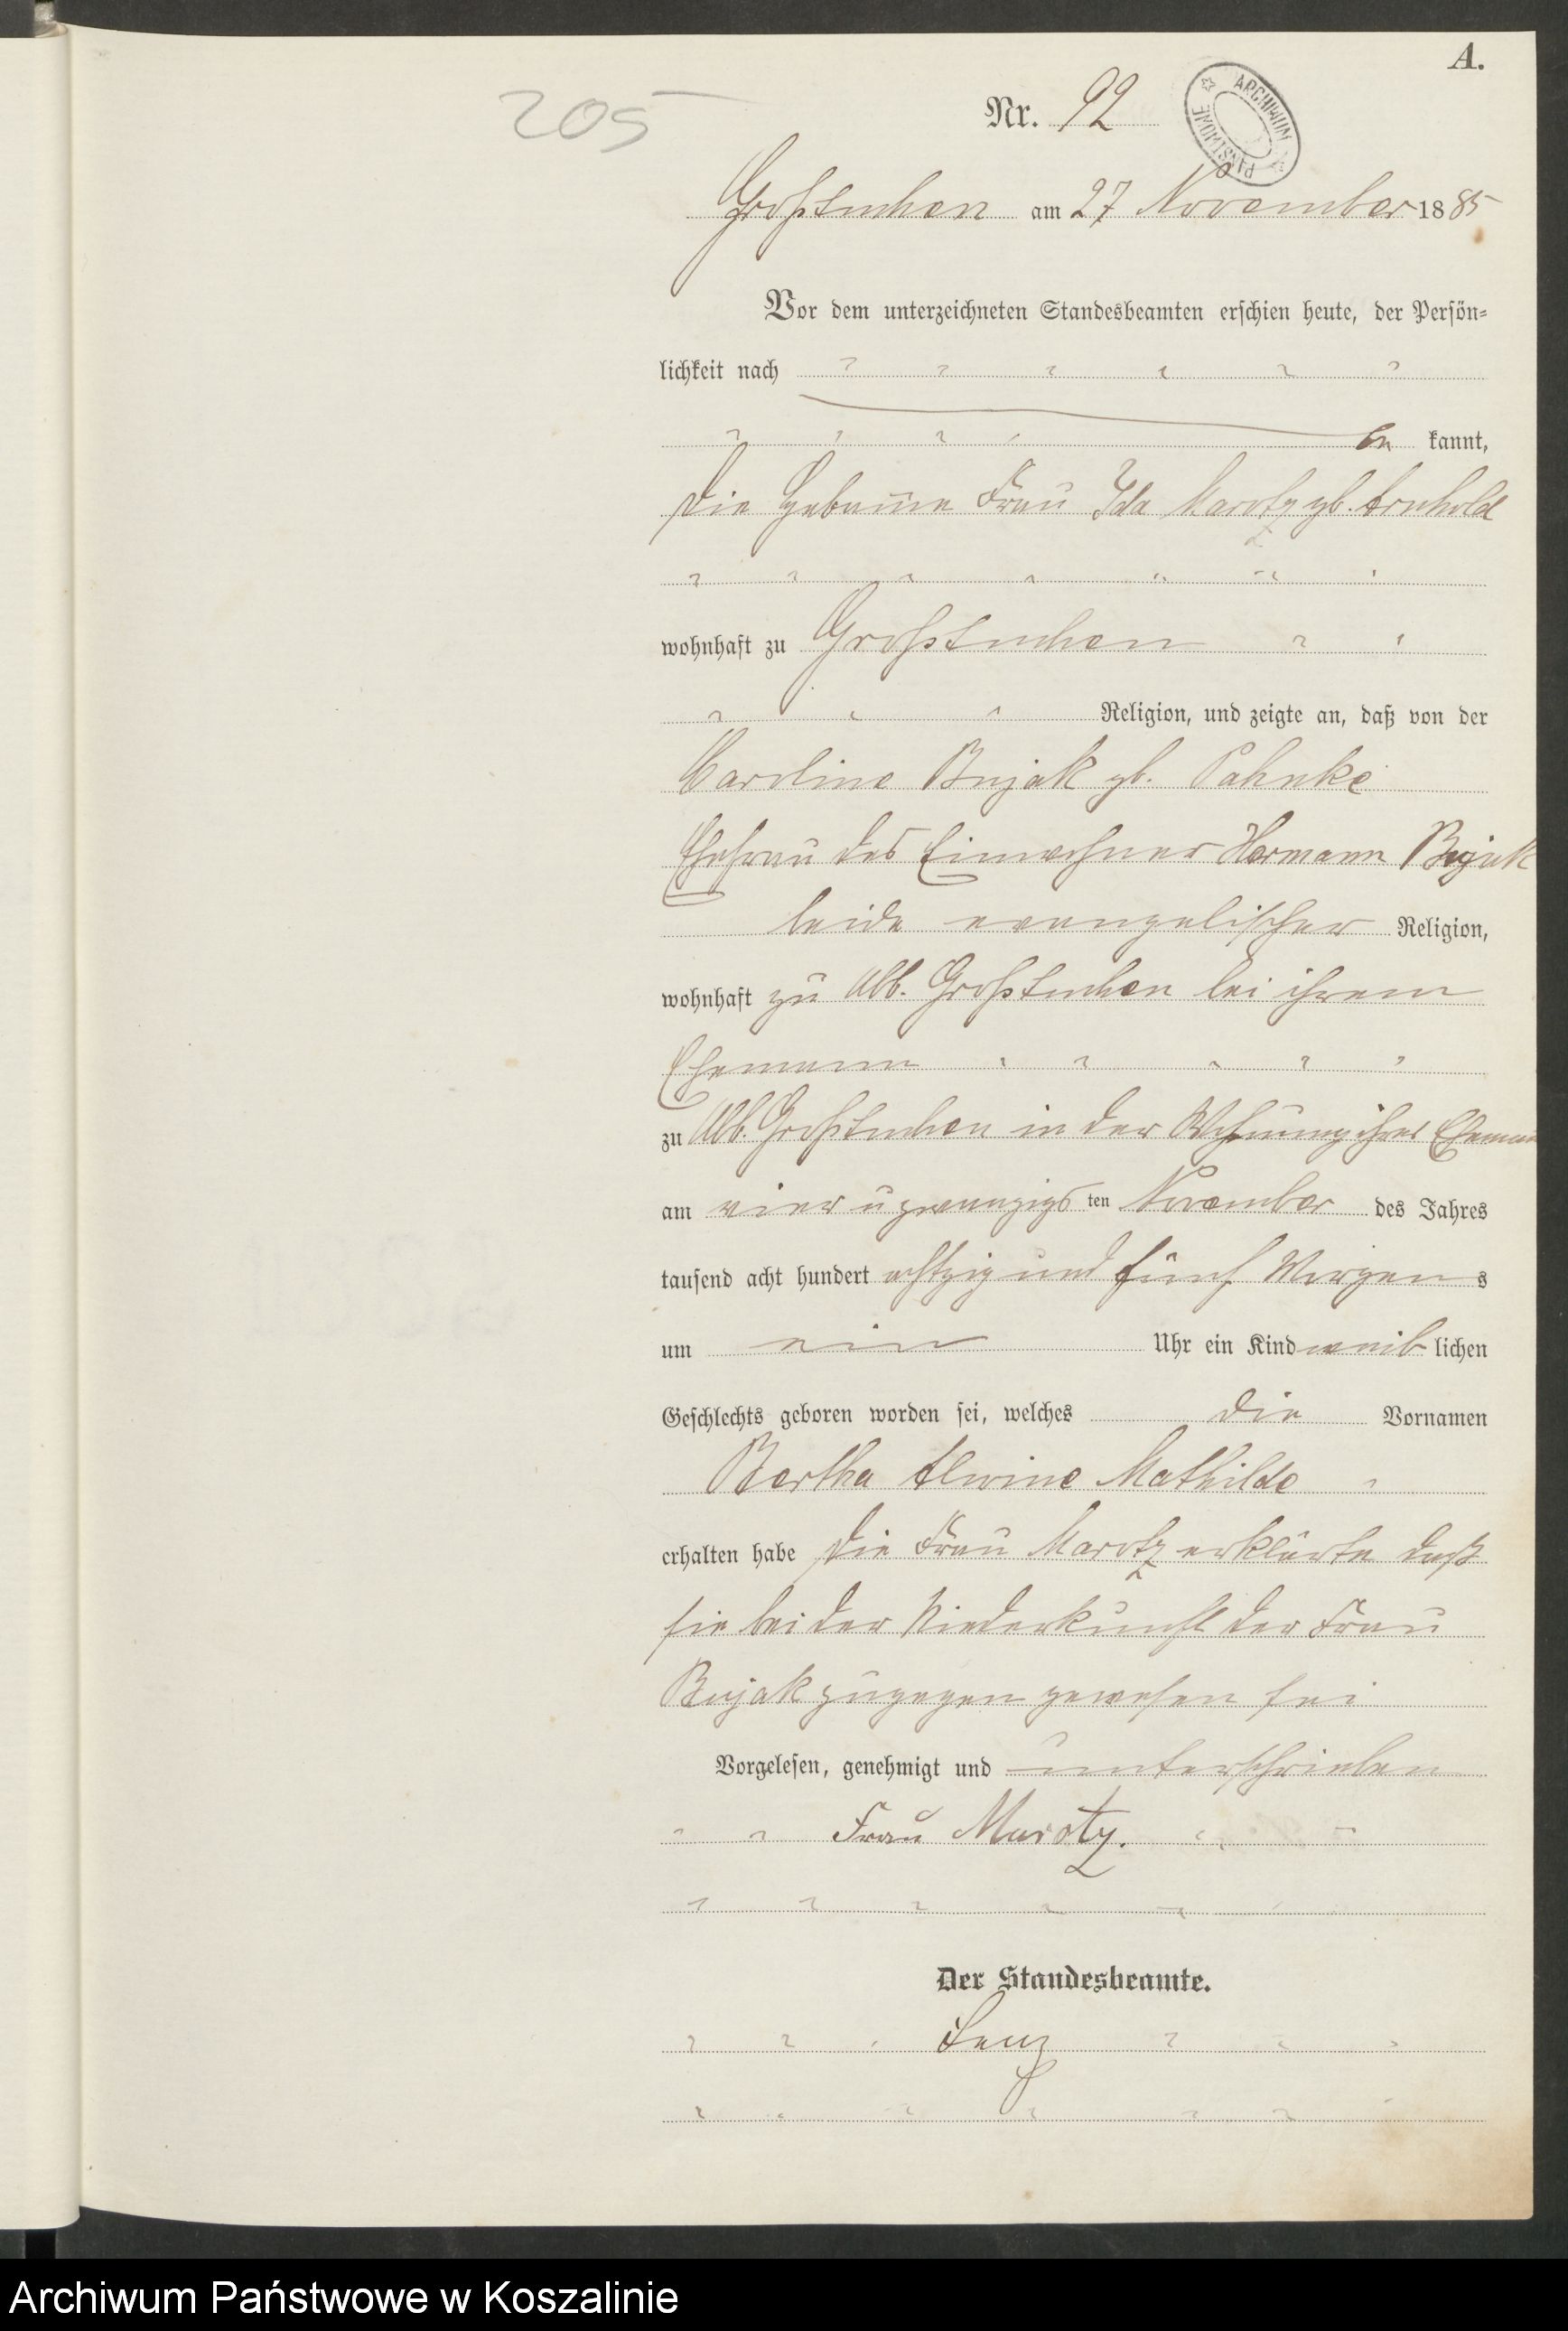 A.
205
Nr. 92
ARCHIWUM PAŃSTWOWE
Großtuchen am 27 November 1885
Vor dem unterzeichneten Standesbeamten erschien heute, der Persön-
lichkeit nach
be kannt,
die Hebamme Frau Ida Marotz gb. Arnhold
wohnhaft zu Großtuchen
Religion, und zeigte an, daß von der
Caroline Bujak gb. Pahnke
Ehefrau des Einwohner Hermann Bujak
beide evangelischer Religion,
wohnhaft zu Abb. Großtuchen bei ihrem
Ehemann
zu Abb. Großtuchen in der Wohnung ihres Ehemann
am vier u zwanzigs ten November des Jahres
tausend acht hundert achtzig und fünf Morgen s
um ein Uhr ein Kind weib lichen
Geschlechts geboren worden sei, welches die Vornamen
Bertha Alwine Mathilde
erhalten habe die Frau Marotz erklärte daß
sie bei der Niederkunft der Frau
Bujak zugegen gewesen sei
Vorgelesen, genehmigt und unterschrieben
Frau Marotz.
Der Standesbeamte.
Lenz
Archiwum Państwowe w Koszalinie